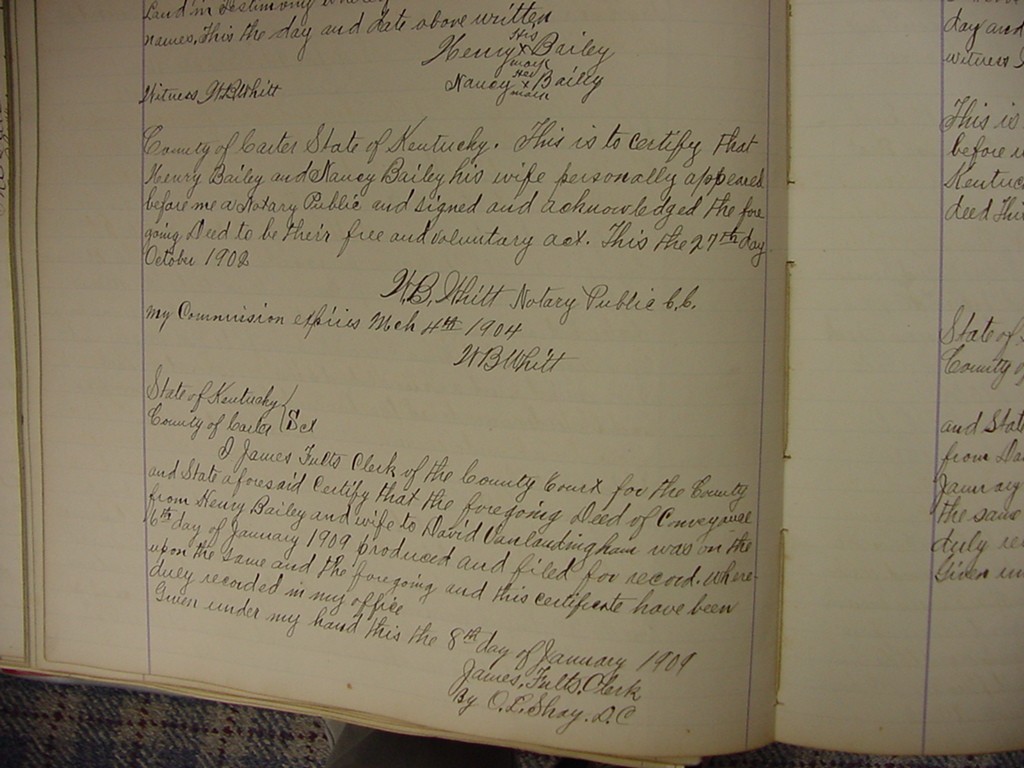 names, This the day and date above written
His
Henry x Bailey
mark
Her
Nancy x Bailey
mark
Witness W.B. Whitt
County of Carter State of Kentucky. This is to certify that
Henry Bailey and Nancy Bailey his wife personally appeared
before me a Notary Public and signed and acknowledged the fore
going Deed to be their free and voluntary act. This the 27th day
October 1902
W.B. Whitt Notary Public C.C.
my Commission expiries Mch 4th 1904
W B Whitt
State of Kentucky
County of Carter } Sct
I James Fults Clerk of the County Court for the County
and State aforesaid Certify that the foregoing Deed of Conveyance
from Henry Bailey and wife to David Vanlandingham was on the
6th day of January 1909 produced and filed for record. Where-
upon the same and the foregoing and this certificate have been
duly recorded in my office
Given under my hand this the 8th day of January 1909
James Fults, Clerk
By O.L. Shay. D.C
day and
witness
This is
before
Kentuc
deed This
State of
County of
and State
from Da
January
the same
duly re
Given un